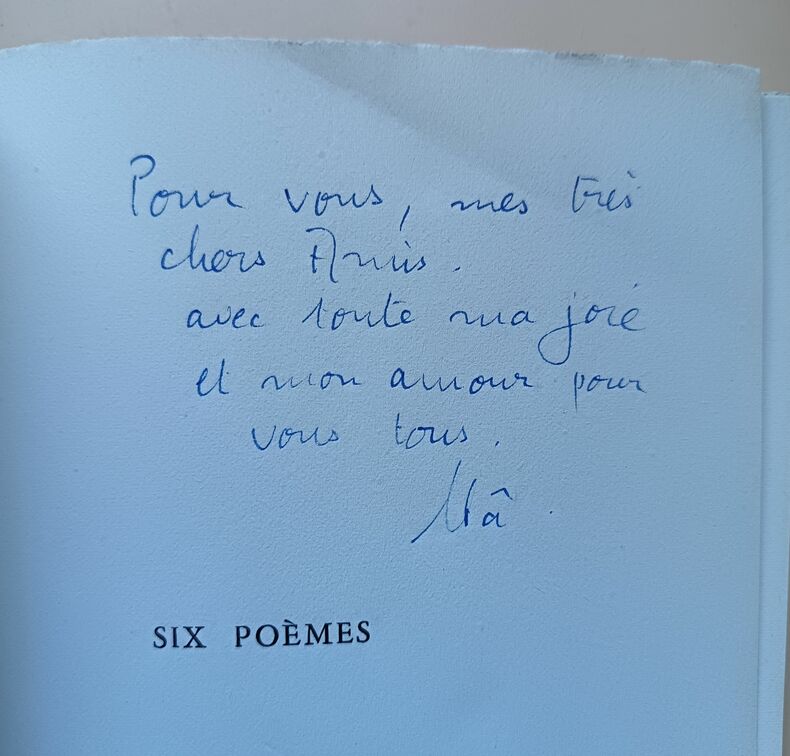 Pour vous, mes très
chers Amis.
avec toute ma joie
et mon amour pour
vous tous.
Mâ.
SIX POÈMES